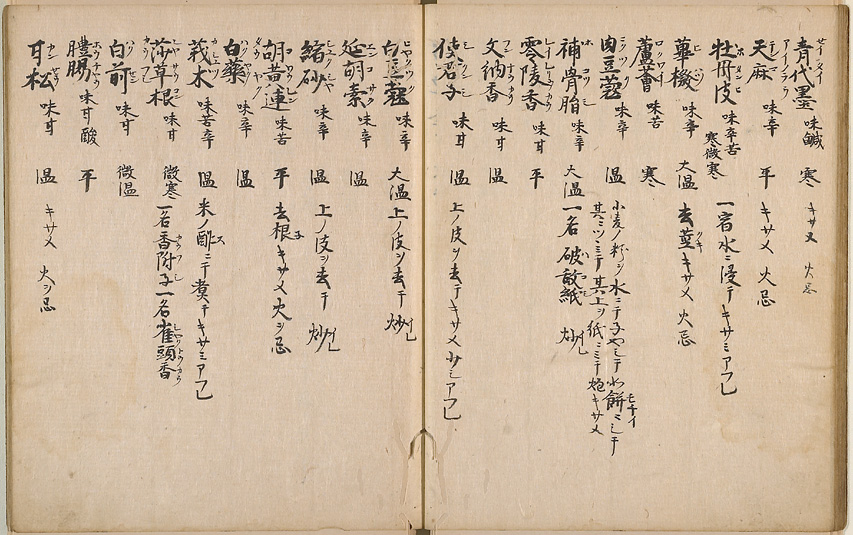 青代墨 味鹹 寒 キサメ 火忌
天麻 味辛 平 キサメ 火忌
牡丹皮 味辛苦 寒微寒 一宿水ニ浸テキサミアフル
蓽撥 味辛 大温 去莖キサメ 火忌
蘆薈 味苦 寒
肉豆蔲 味辛 温 小麦ノ粉ヲ水ニテ子ヤシテ 餅ニシテ
其ニツヽミテ其上ヲ紙ニツヽミテ炮キサメ
補骨脂 味辛 大温 一名破故紙 炒
零陵香 味甘 平
文納香 味甘 温
使君子 味甘 温 上ノ皮ヲ去テキサメ 少シアフル
白豆蔲 味辛 大温 上ノ皮ヲ去テ炒
延胡索 味辛 温
縮砂 味辛 温 上ノ皮ヲ去テ 炒
胡黄連 味苦 平 去根キサメ火ヲ忌
白藥 味辛 温
莪朮 味苦辛 温 米ノ酢ニテ煑テキサミアフル
莎草根 味甘 微寒 一名香附子一名雀頭香
白前 味甘 微温
醴腸 味甘酸 平
甘松 味甘 温 キサメ 火ヲ忌